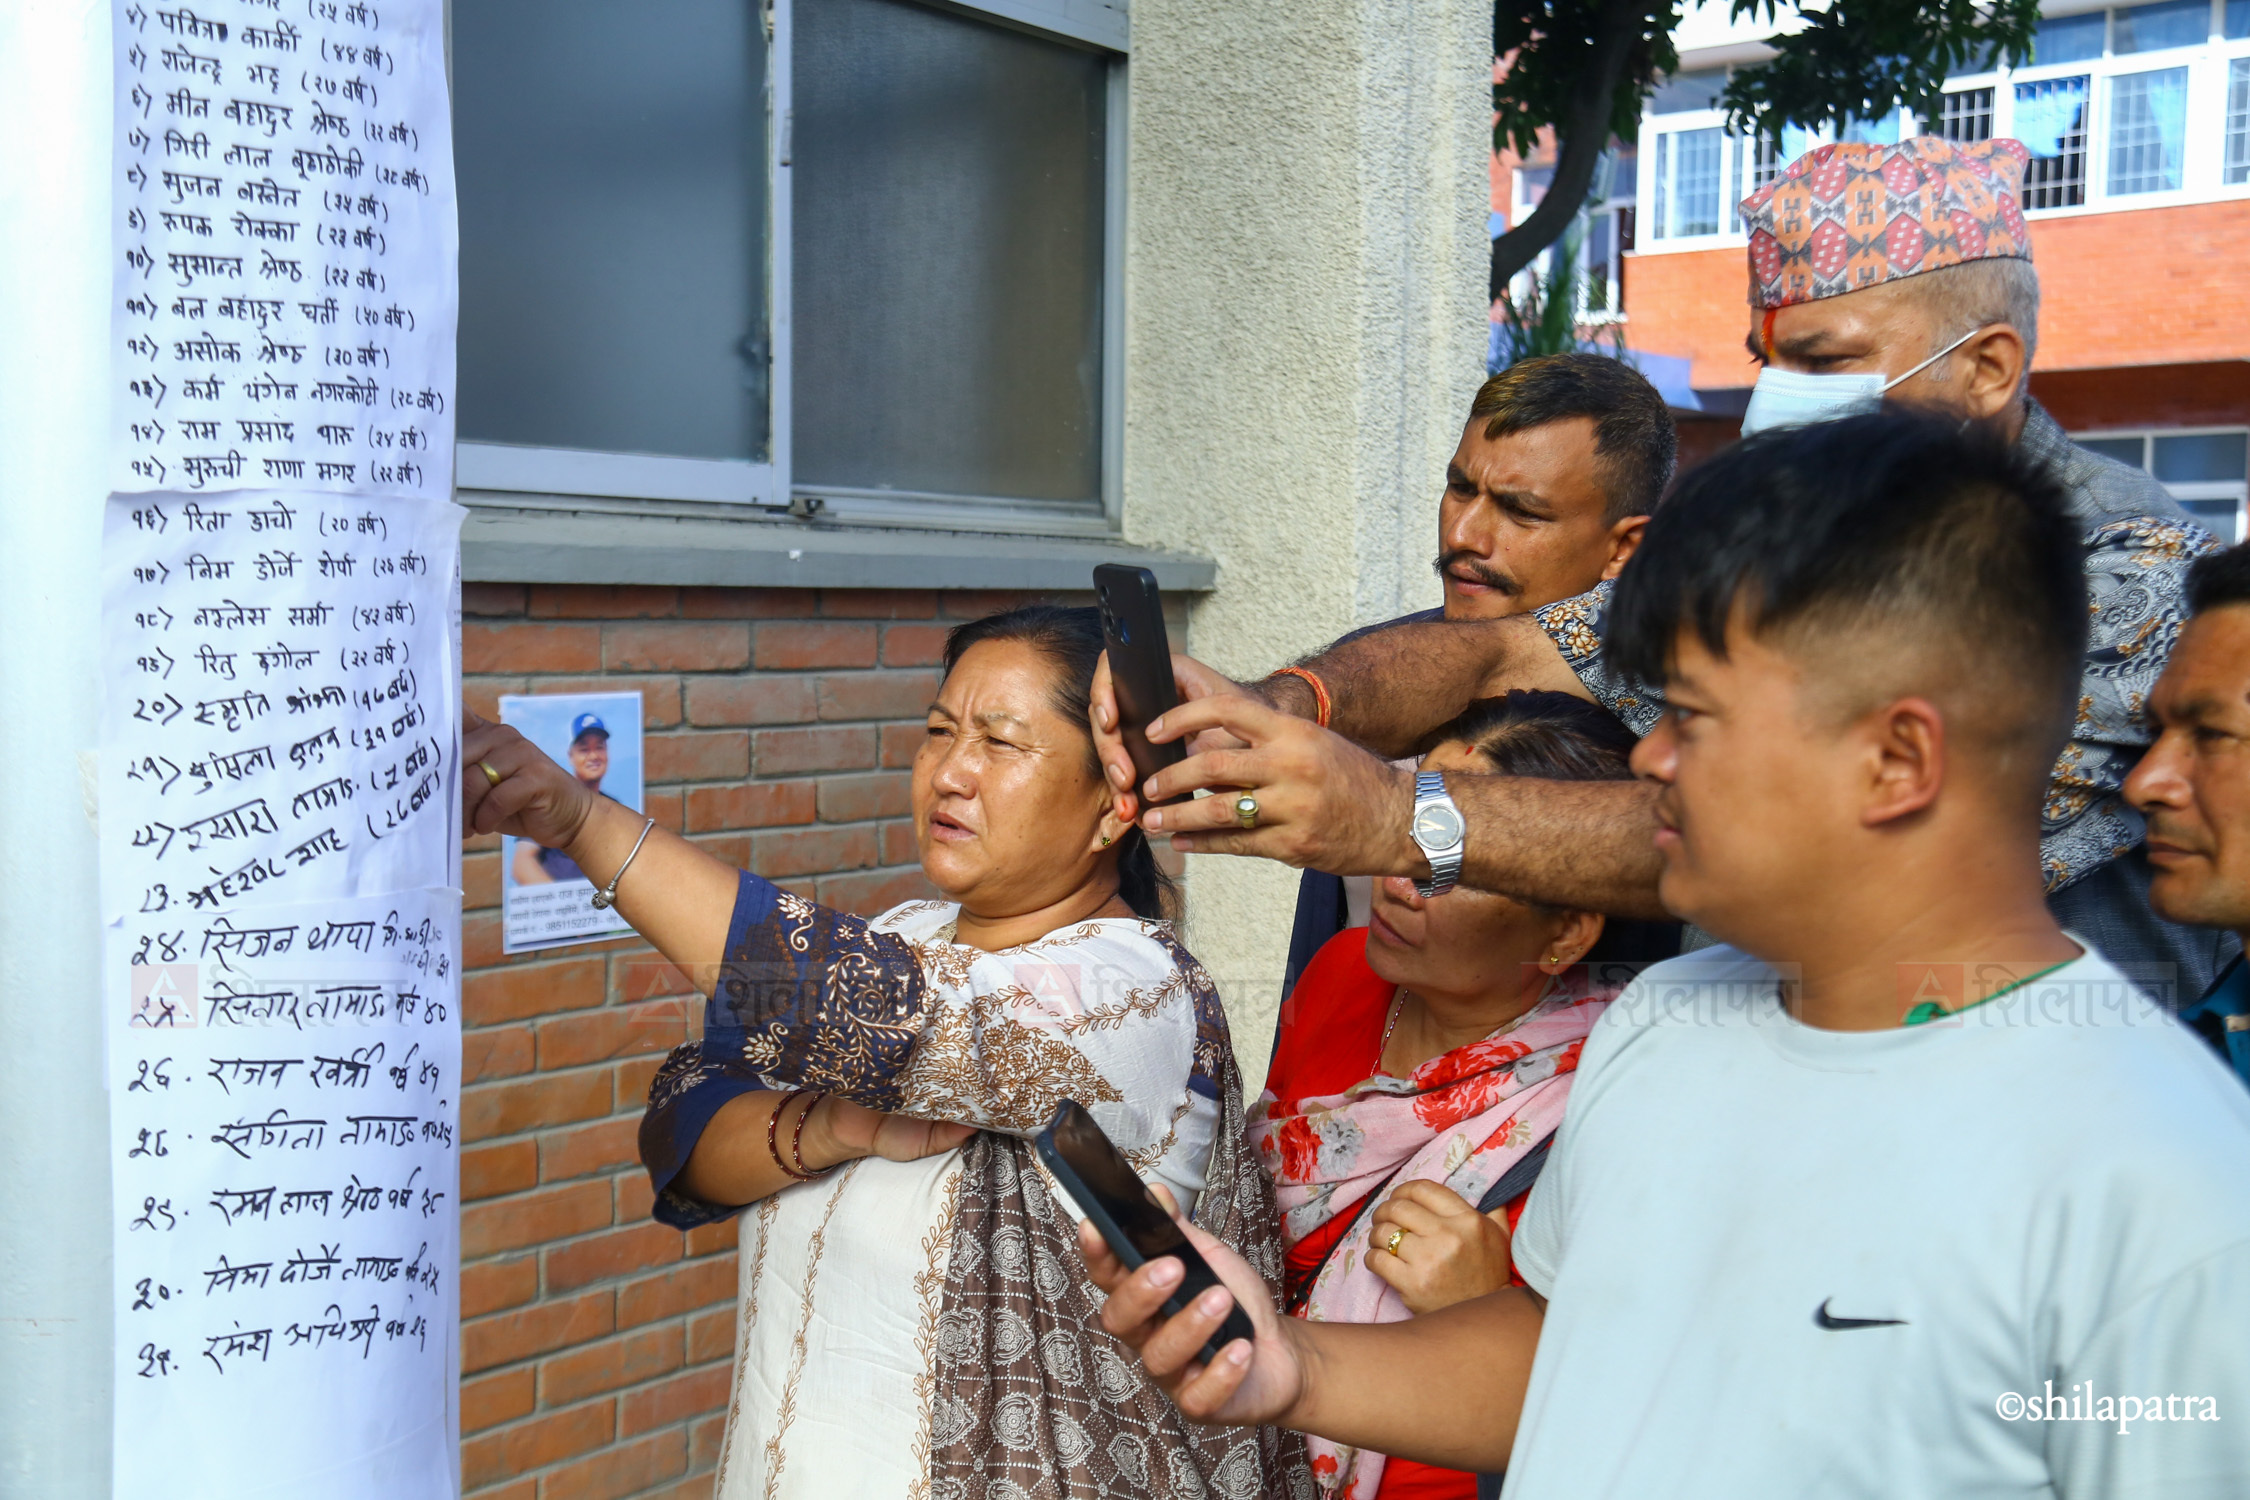 (२५ वर्ष)
४) पवित्रा कार्की (४४ वर्ष)
५) राजेन्द्र भट्ट (२७ वर्ष)
६) मीन बहादुर श्रेष्ठ (३२ वर्ष)
७) गिरी लाल बूढाठोकी (२८ वर्ष)
८) सुजन बस्नेत (३५ वर्ष)
९) रुपक रोक्का (२३ वर्ष)
१०) सुसान्त श्रेष्ठ (२३ वर्ष)
११) बल बहादुर घर्ती (५० वर्ष)
१२) असोक श्रेष्ठ (३० वर्ष)
१३) कर्म थंगेन नगरकोटी (२८ वर्ष)
१४) राम प्रसाद थारु (३४ वर्ष)
१५) सुरुची राणा मगर (२२ वर्ष)
१६) रिता डाचो (२० वर्ष)
१७) निम डोर्जे शेर्पा (२६ वर्ष)
१८) कम्लेस सर्मा (४३ वर्ष)
१९) रितु डंगोल (३२ वर्ष)
२०) स्मृति (१८ वर्ष)
२१) (३१ वर्ष)
२२) इसारा तामाङ (५ वर्ष)
२३. शाह (२८ वर्ष)
२४. सिजन थापा
२५. सितार तामाङ वर्ष ४०
२६. राजन खत्री वर्ष ४१
२८. संगिता तामाङ वर्ष
२९. रमन लाल श्रेष्ठ वर्ष ३८
३०. निमा दोर्जे तामाङ वर्ष २५
३१. रमेश अधिकारी वर्ष २६
9851152279
शिलापत्र शिलापत्र शिलापत्र शिलापत्र शिलापत्र
©shilapatra